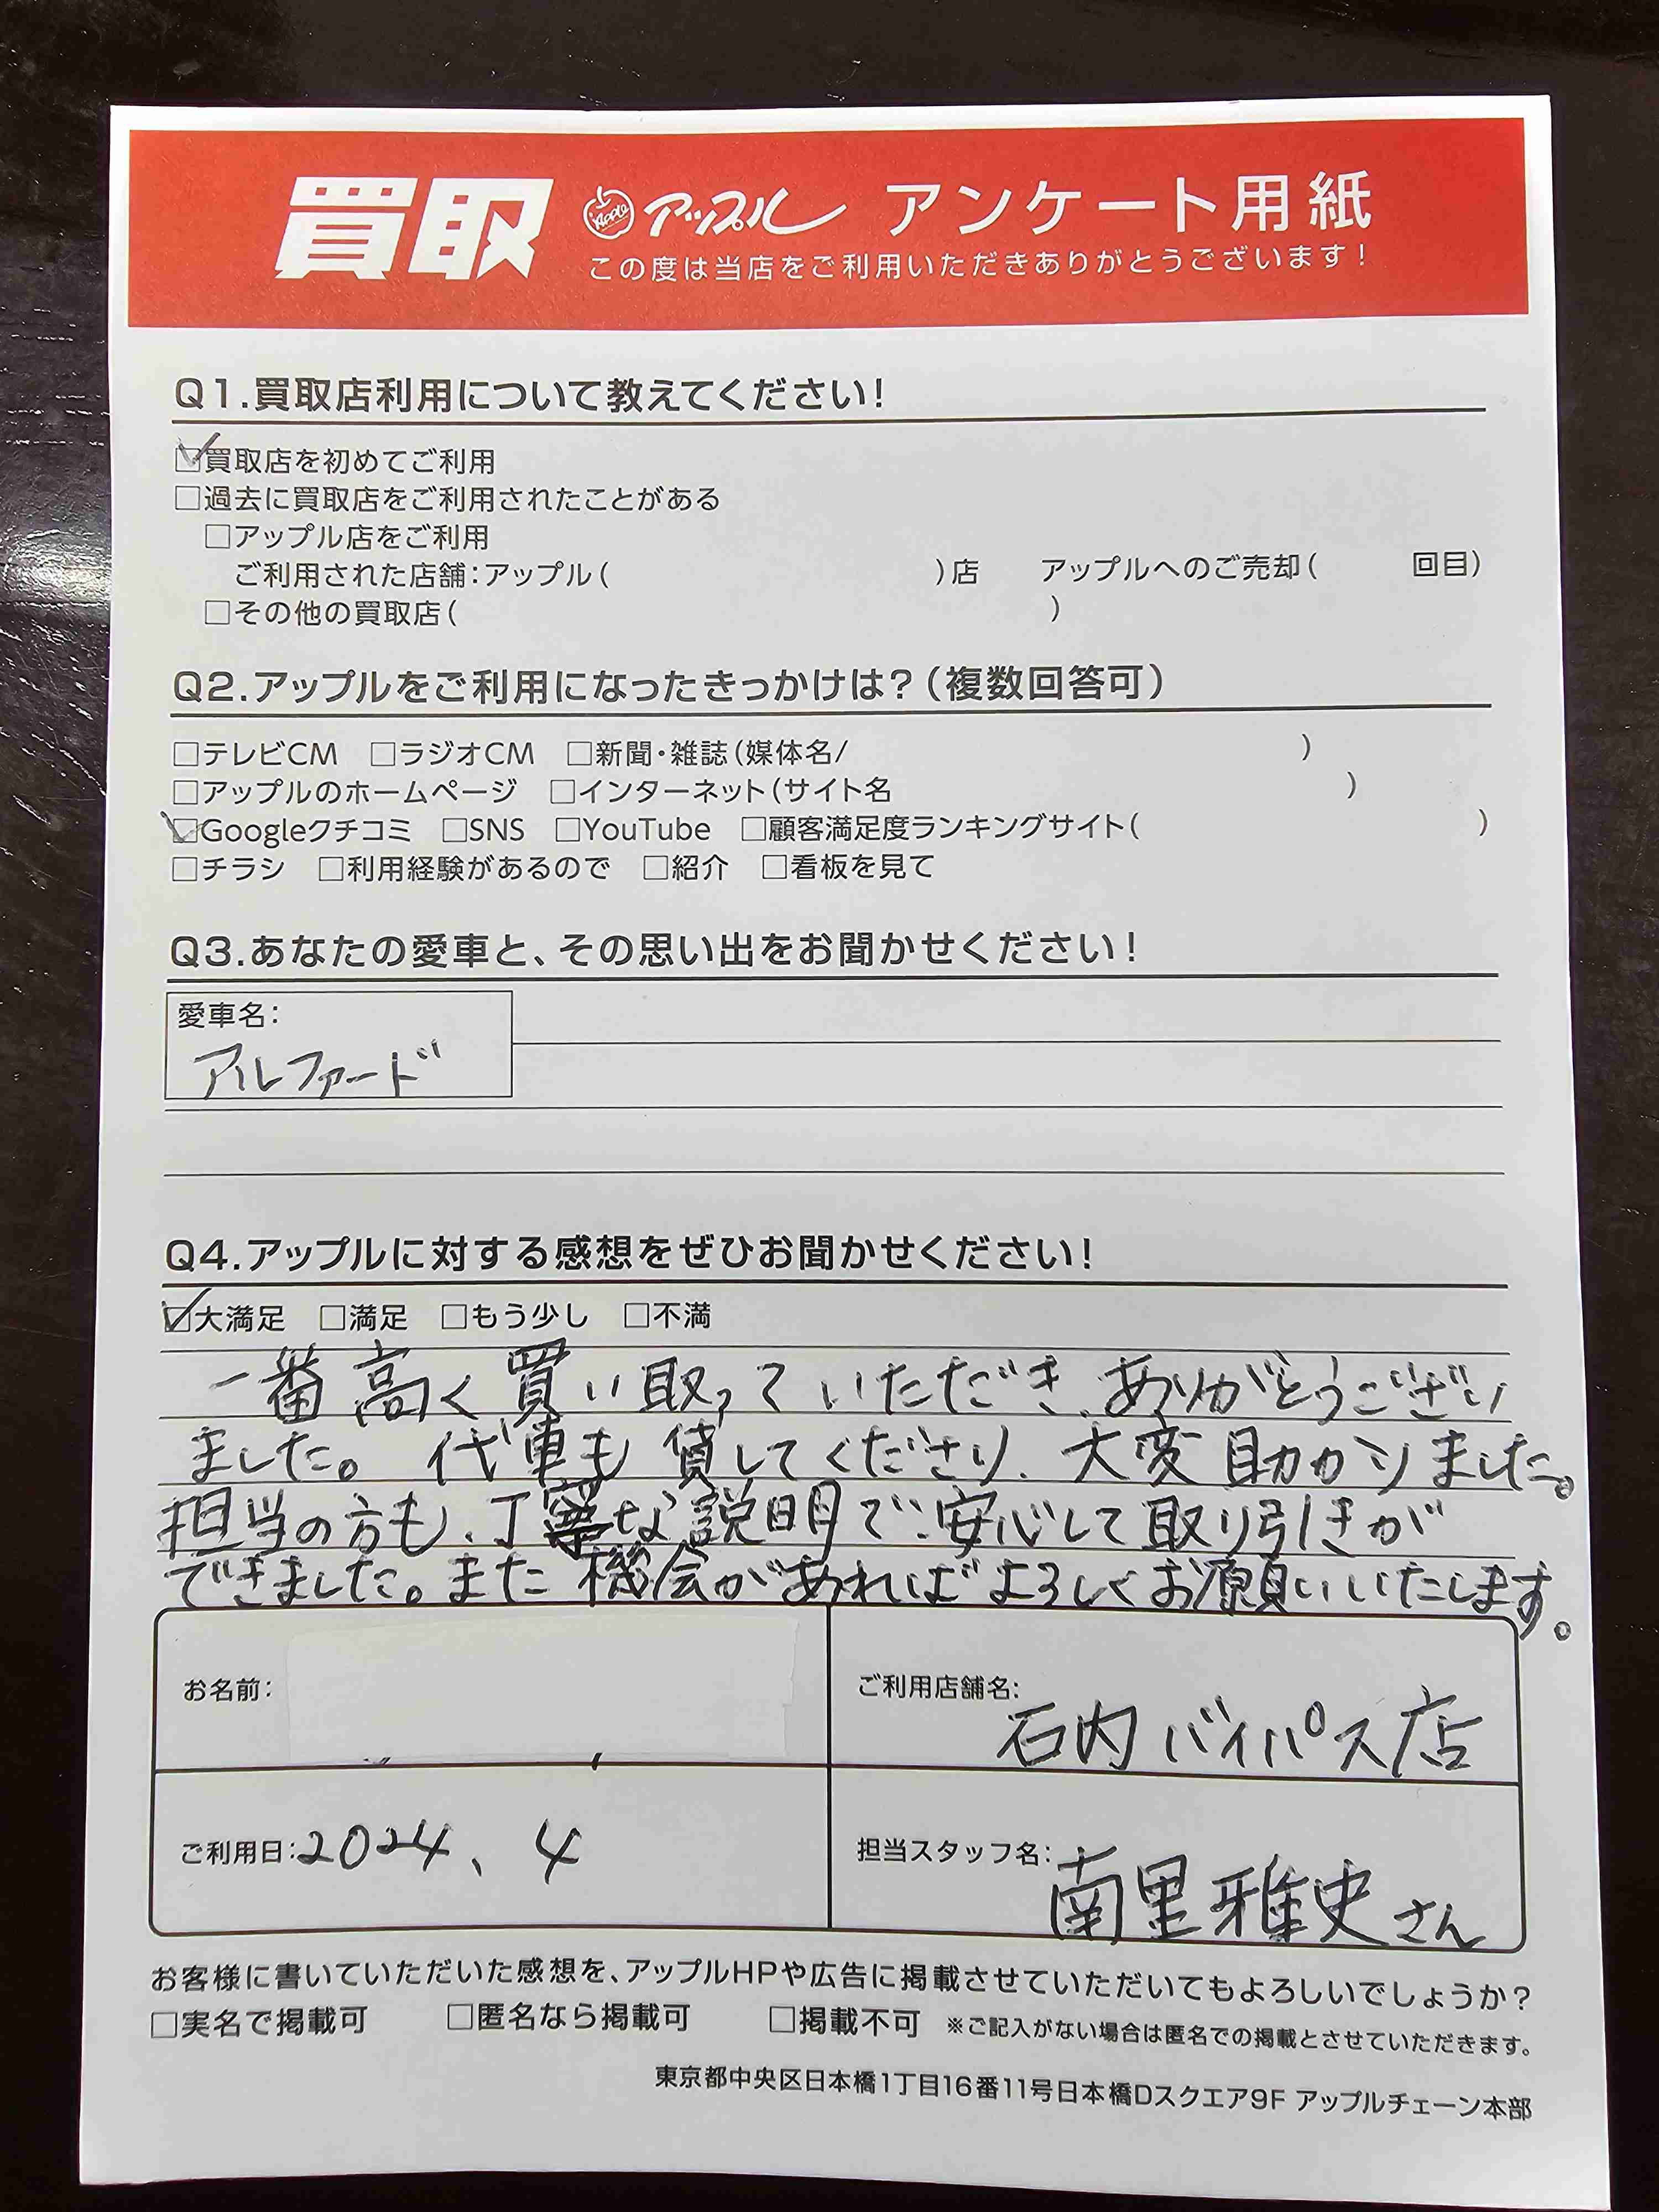 買取 Apple アップル アンケート用紙
この度は当店をご利用いただきありがとうございます!
Q1.買取店利用について教えてください!
☑買取店を初めてご利用
□過去に買取店をご利用されたことがある
□アップル店をご利用
ご利用された店舗:アップル( )店 アップルへのご売却( 回目)
□その他の買取店( )
Q2.アップルをご利用になったきっかけは?(複数回答可)
□テレビCM □ラジオCM □新聞・雑誌(媒体名/ )
□アップルのホームページ □インターネット(サイト名 )
☑Googleクチコミ □SNS □YouTube □顧客満足度ランキングサイト( )
□チラシ □利用経験があるので □紹介 □看板を見て
Q3.あなたの愛車と、その思い出をお聞かせください!
愛車名:
アルファード
Q4.アップルに対する感想をぜひお聞かせください!
☑大満足 □満足 □もう少し □不満
一番高く買い取っていただき、ありがとうござい
ました。代車も貸してくださり、大変助かりました。
担当の方も、丁寧な説明で安心して取り引きが
できました。また機会があればよろしくお願いいたします。
お名前:
ご利用店舗名:
石内バイパス店
ご利用日:2024、4
担当スタッフ名:
南里雅史さん
お客様に書いていただいた感想を、アップルHPや広告に掲載させていただいてもよろしいでしょうか?
□実名で掲載可 □匿名なら掲載可 □掲載不可 ※ご記入がない場合は匿名での掲載とさせていただきます。
東京都中央区日本橋1丁目16番11号日本橋Dスクエア9F アップルチェーン本部